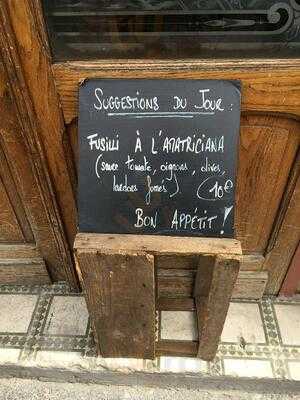 SUGGESTIONS DU JOUR :
FUSILLI À L'AMATRICIANA
(sauce tomate, oignons, olives,
lardons fumés) 10€
BON APPÉTIT !